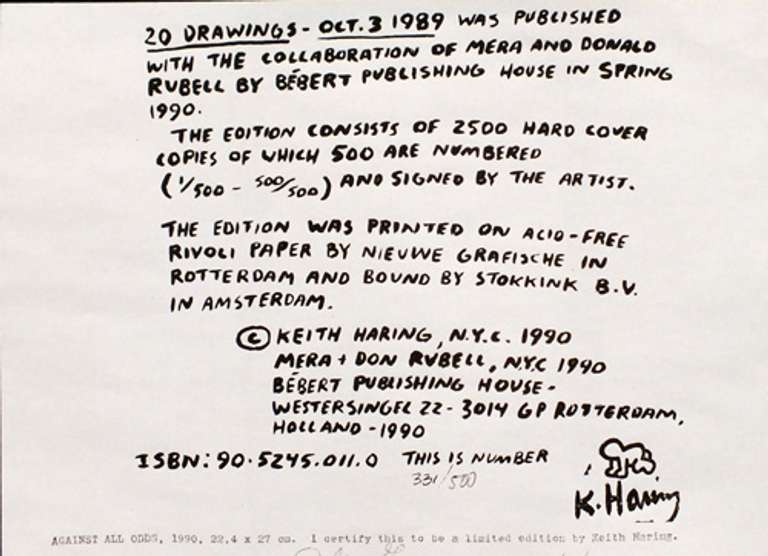 20 DRAWINGS - OCT. 3 1989 WAS PUBLISHED
WITH THE COLLABORATION OF MERA AND DONALD
RUBELL BY BÉBERT PUBLISHING HOUSE IN SPRING
1990.
THE EDITION CONSISTS OF 2500 HARD COVER
COPIES OF WHICH 500 ARE NUMBERED
(1/500 - 500/500) AND SIGNED BY THE ARTIST.
THE EDITION WAS PRINTED ON ACID-FREE
RIVOLI PAPER BY NIEUWE GRAFISCHE IN
ROTTERDAM AND BOUND BY STOKKINK B.V.
IN AMSTERDAM.
© KEITH HARING, N.Y.C. 1990
MERA + DON RUBELL, NYC 1990
BÉBERT PUBLISHING HOUSE -
WESTERSINGEL 22 - 3014 GP ROTTERDAM,
HOLLAND - 1990
ISBN: 90.5245.011.0 THIS IS NUMBER
331/500
K. Haring
AGAINST ALL ODDS, 1990, 22,4 x 27 cm. I certify this to be a limited edition by Keith Haring.